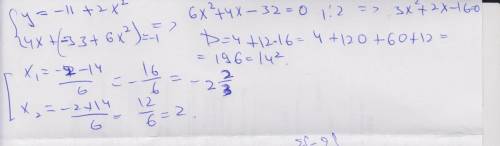 { y = -11 + 2x²
{ 4x + (-33 + 6x²) = -1 => 6x² + 4x - 32 = 0 |:2 => 3x² + 2x - 160
D = 4 + 12·16 = 4 + 120 + 60 + 12 =
= 196 = 14².
[ x₁ = (-2 - 14)/6 = -16/6 = -2 2/3
[ x₂ = (-2 + 14)/6 = 12/6 = 2.